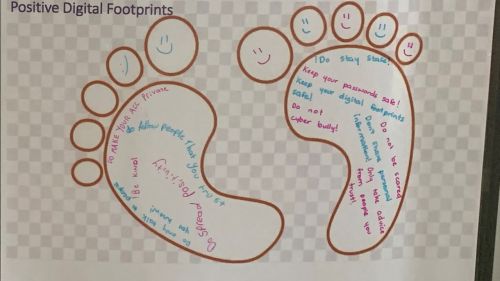 Positive Digital Footprints
:)
TO MAKE YOUR ACC Private
do follow people that you trust
Spread Positivity
Be kind!
Do only talk to people
you know!
!Do stay safe!
Keep your passwords safe!
Keep your digital footprints
safe!
Do not
cyber bully!
Do not be scared
Don't share personal
information!
Only take advice
from people you
trust!